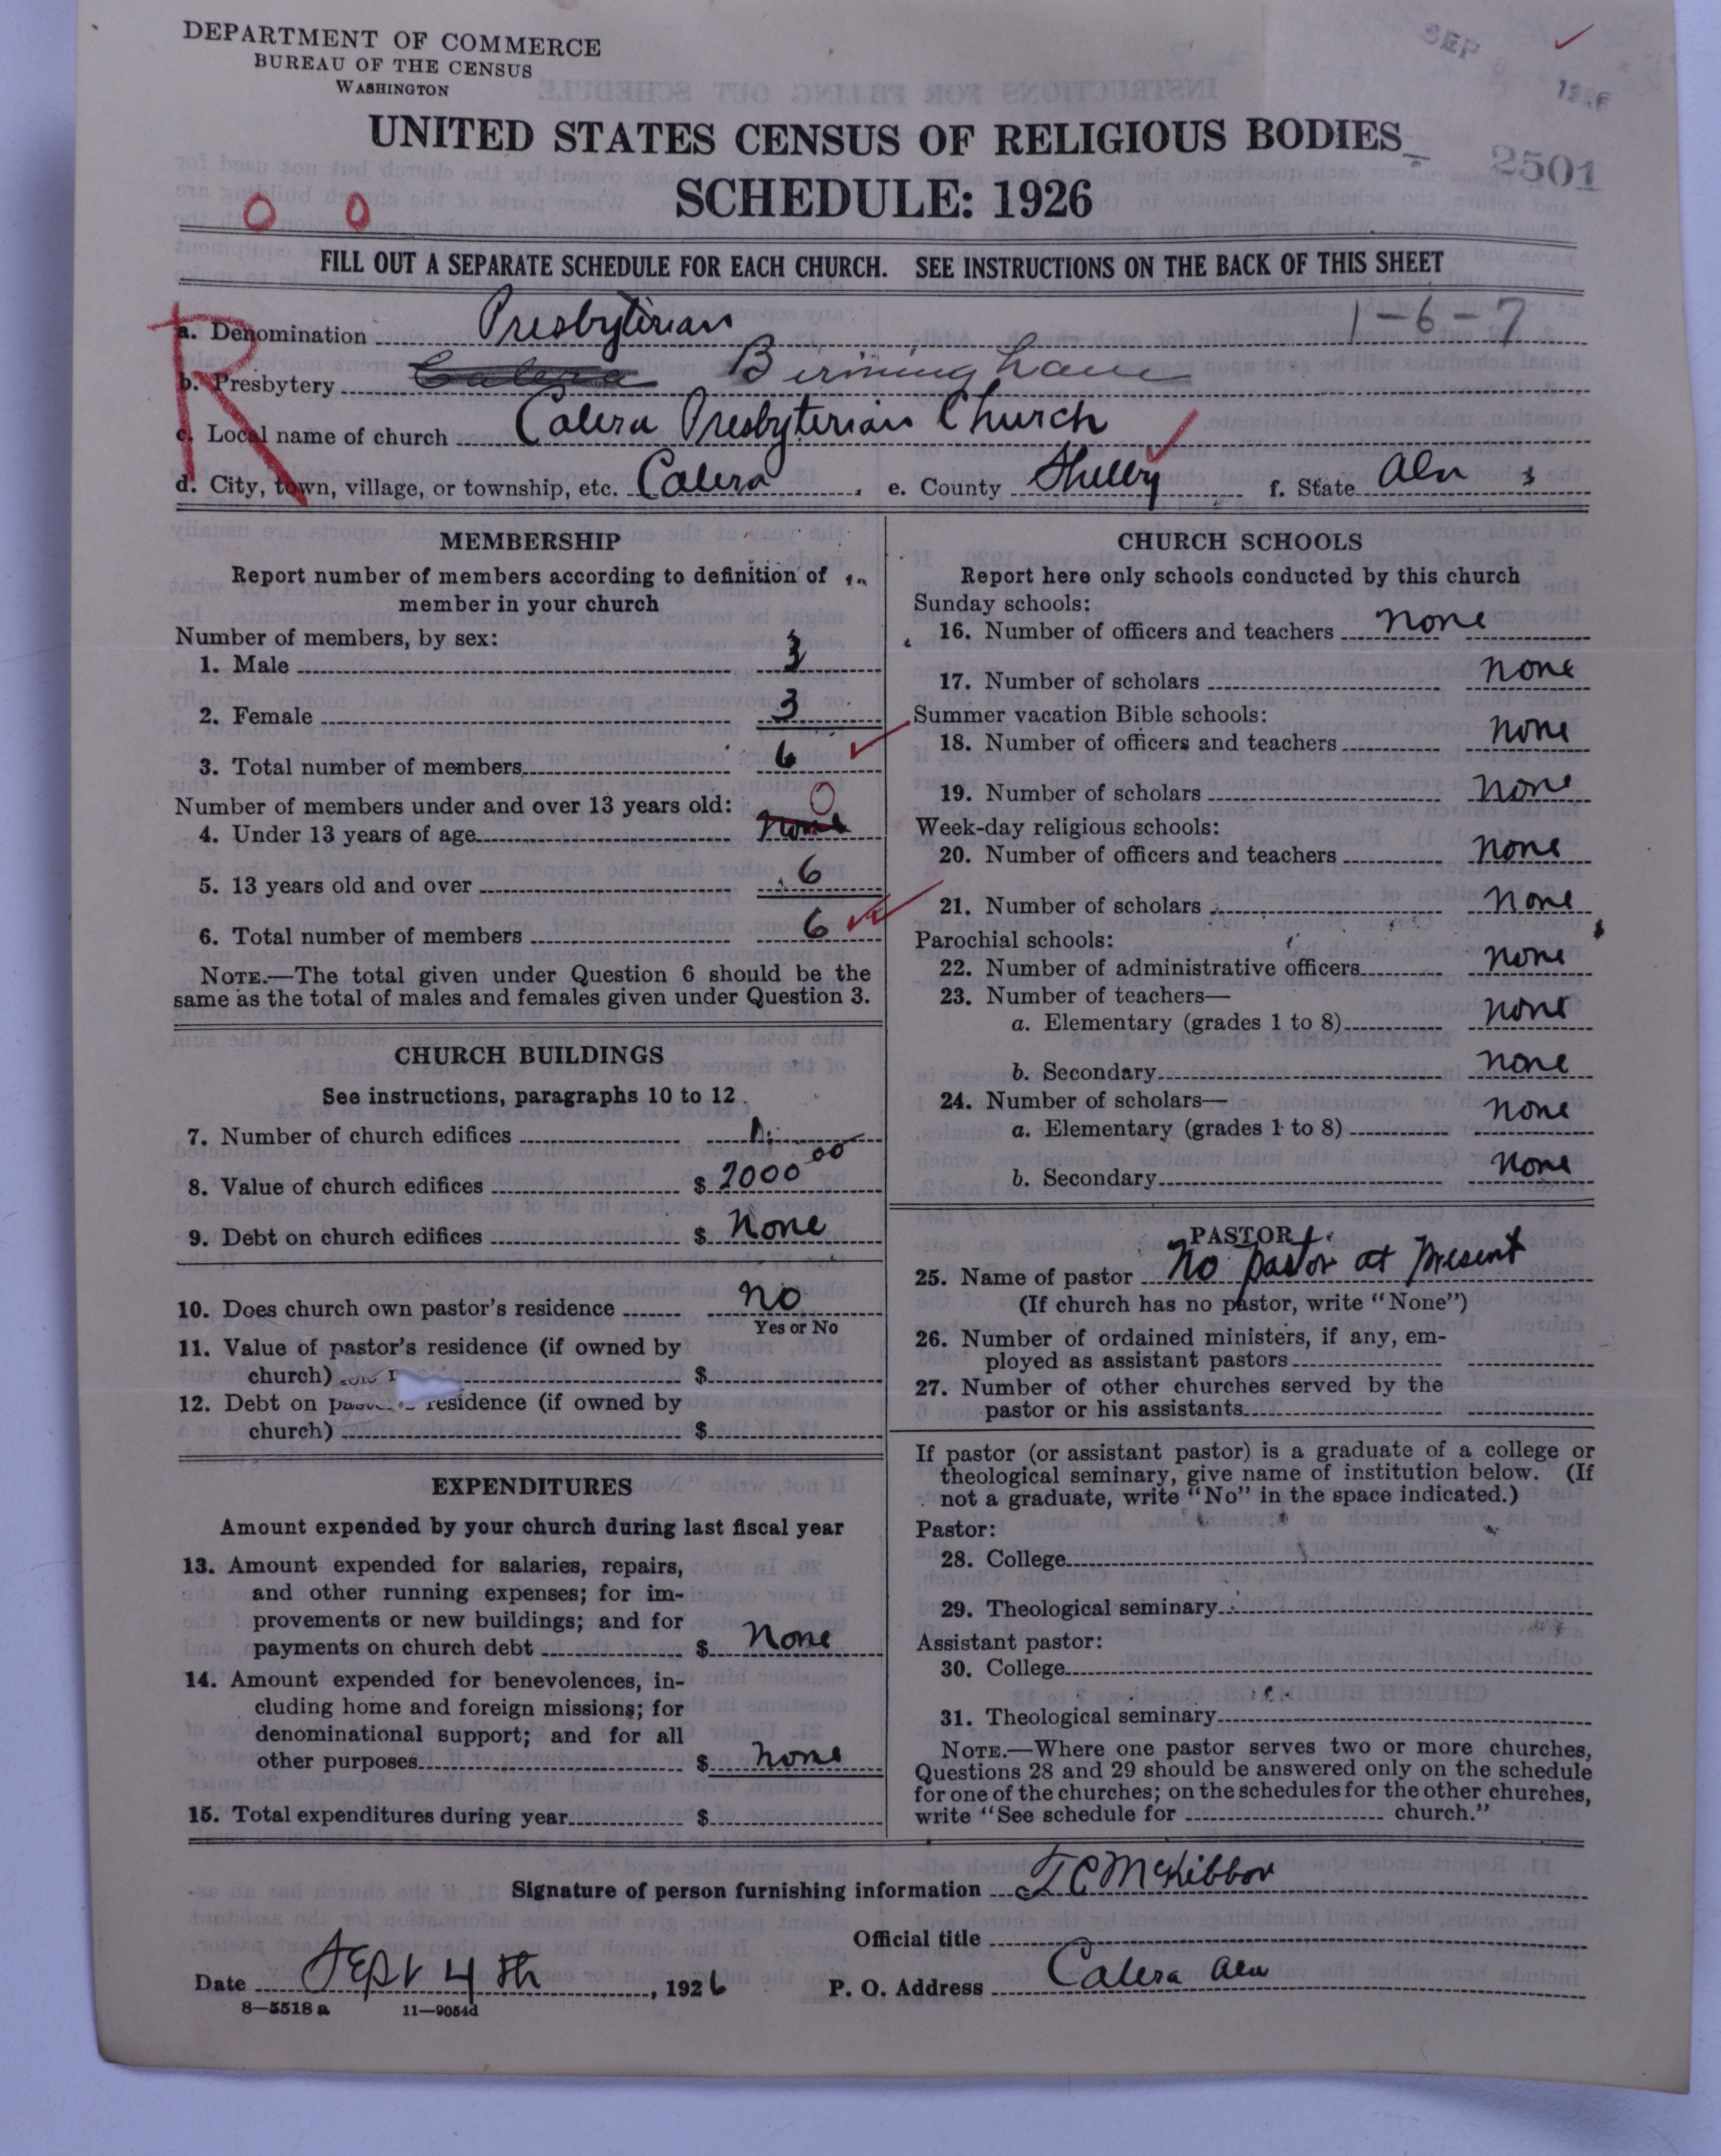 DEPARTMENT OF COMMERCE
BUREAU OF THE CENSUS
WASHINGTON
SEP
UNITED STATES CENSUS OF RELIGIOUS BODIES
2501
SCHEDULE: 1926
0 0
FILL OUT A SEPARATE SCHEDULE FOR EACH CHURCH. SEE INSTRUCTIONS ON THE BACK OF THIS SHEET
R
1-6-7
a. Denomination Presbyterian
b. Presbytery Calera Birmingham
c. Local name of church Calera Presbyterian Church
d. City, town, village, or township, etc. Calera e. County Shelby f. State Ala
MEMBERSHIP
Report number of members according to definition of
member in your church
Number of members, by sex:
1. Male 3
2. Female 3
3. Total number of members 6
Number of members under and over 13 years old: 0
4. Under 13 years of age none
5. 13 years old and over 6
6. Total number of members 6
NOTE.—The total given under Question 6 should be the
same as the total of males and females given under Question 3.
CHURCH BUILDINGS
See instructions, paragraphs 10 to 12
7. Number of church edifices 1
8. Value of church edifices $ 2000 00
9. Debt on church edifices $ None
10. Does church own pastor's residence no
Yes or No
11. Value of pastor's residence (if owned by
church) $
12. Debt on residence (if owned by
church) $
EXPENDITURES
Amount expended by your church during last fiscal year
13. Amount expended for salaries, repairs,
and other running expenses; for im-
provements or new buildings; and for
payments on church debt $ None
14. Amount expended for benevolences, in-
cluding home and foreign missions; for
denominational support; and for all
other purposes $ none
15. Total expenditures during year $
CHURCH SCHOOLS
Report here only schools conducted by this church
Sunday schools:
16. Number of officers and teachers none
17. Number of scholars none
Summer vacation Bible schools:
18. Number of officers and teachers none
19. Number of scholars none
Week-day religious schools:
20. Number of officers and teachers none
21. Number of scholars none
Parochial schools:
22. Number of administrative officers none
23. Number of teachers—
a. Elementary (grades 1 to 8) none
b. Secondary none
24. Number of scholars—
a. Elementary (grades 1 to 8) none
b. Secondary none
PASTOR
25. Name of pastor No pastor at present
(If church has no pastor, write "None")
26. Number of ordained ministers, if any, em-
ployed as assistant pastors
27. Number of other churches served by the
pastor or his assistants
If pastor (or assistant pastor) is a graduate of a college or
theological seminary, give name of institution below. (If
not a graduate, write "No" in the space indicated.)
Pastor:
28. College
29. Theological seminary
Assistant pastor:
30. College
31. Theological seminary
NOTE.—Where one pastor serves two or more churches,
Questions 28 and 29 should be answered only on the schedule
for one of the churches; on the schedules for the other churches,
write "See schedule for church."
Signature of person furnishing information T C McKibbon
Official title
Date Sept 4th, 1926 P. O. Address Calera Ala
8—5518 a 11—9054d